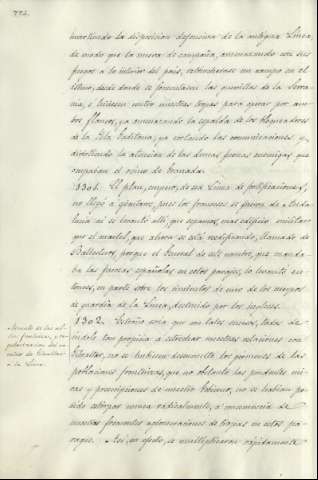 774.
invirtiendo la disposicion defensiva de la antigua Linea,
de modo que la nueva de campaña, amenazando con sus
fuegos a lo interior del pais, retrincherase un campo en el
istmo, desde donde se fomentasen las guerrillas de la Serra-
nia, e hiciesen entre nuestras tropas para operar por am-
bos flancos, ya amenazando la espalda de los bloqueadores
de la Isla Gaditana, ya cortando las comunicaciones y
divirtiendo la atencion de las demas fuerzas enemigas que
ocupaban el reino de Granada.
1301. El plan, empero, de esa Linea de fortificaciones,
no llegó a ejecutarse, pues los franceses se fueron de Anda-
lucia asi se levantó allí, que sepamos, mas edificio militar
que el cuartel, que ahora se está reedificando, llamado de
Ballesteros, porque el General de este nombre, que manda-
ba las fuerzas españolas en estos parajes, lo levantó en-
tonces, en parte sobre los cimientos de uno de los cuerpos
de guardia de la Linea, destruido por los ingleses.
Aumento de las al-
tas fronteras, y re-
del co-
mercio de Gibraltar
a la Linea.
1302. Estraño seria que con tales sucesos, toda la
indole tan propicia a estrechar nuestras relaciones con
Gibraltar, no se hubiesen desenvuelto los gérmenes de las
poblaciones fronterizas, que no obstante las prudentes mi-
ras y prescripciones de nuestro Gobierno, no se habian po-
dido estirpar nunca radicalmente, a consecuencia de
nuestras frecuentes aglomeraciones de tropas en estos pa-
rages. Asi, en efecto, se multiplicaron rápidamente